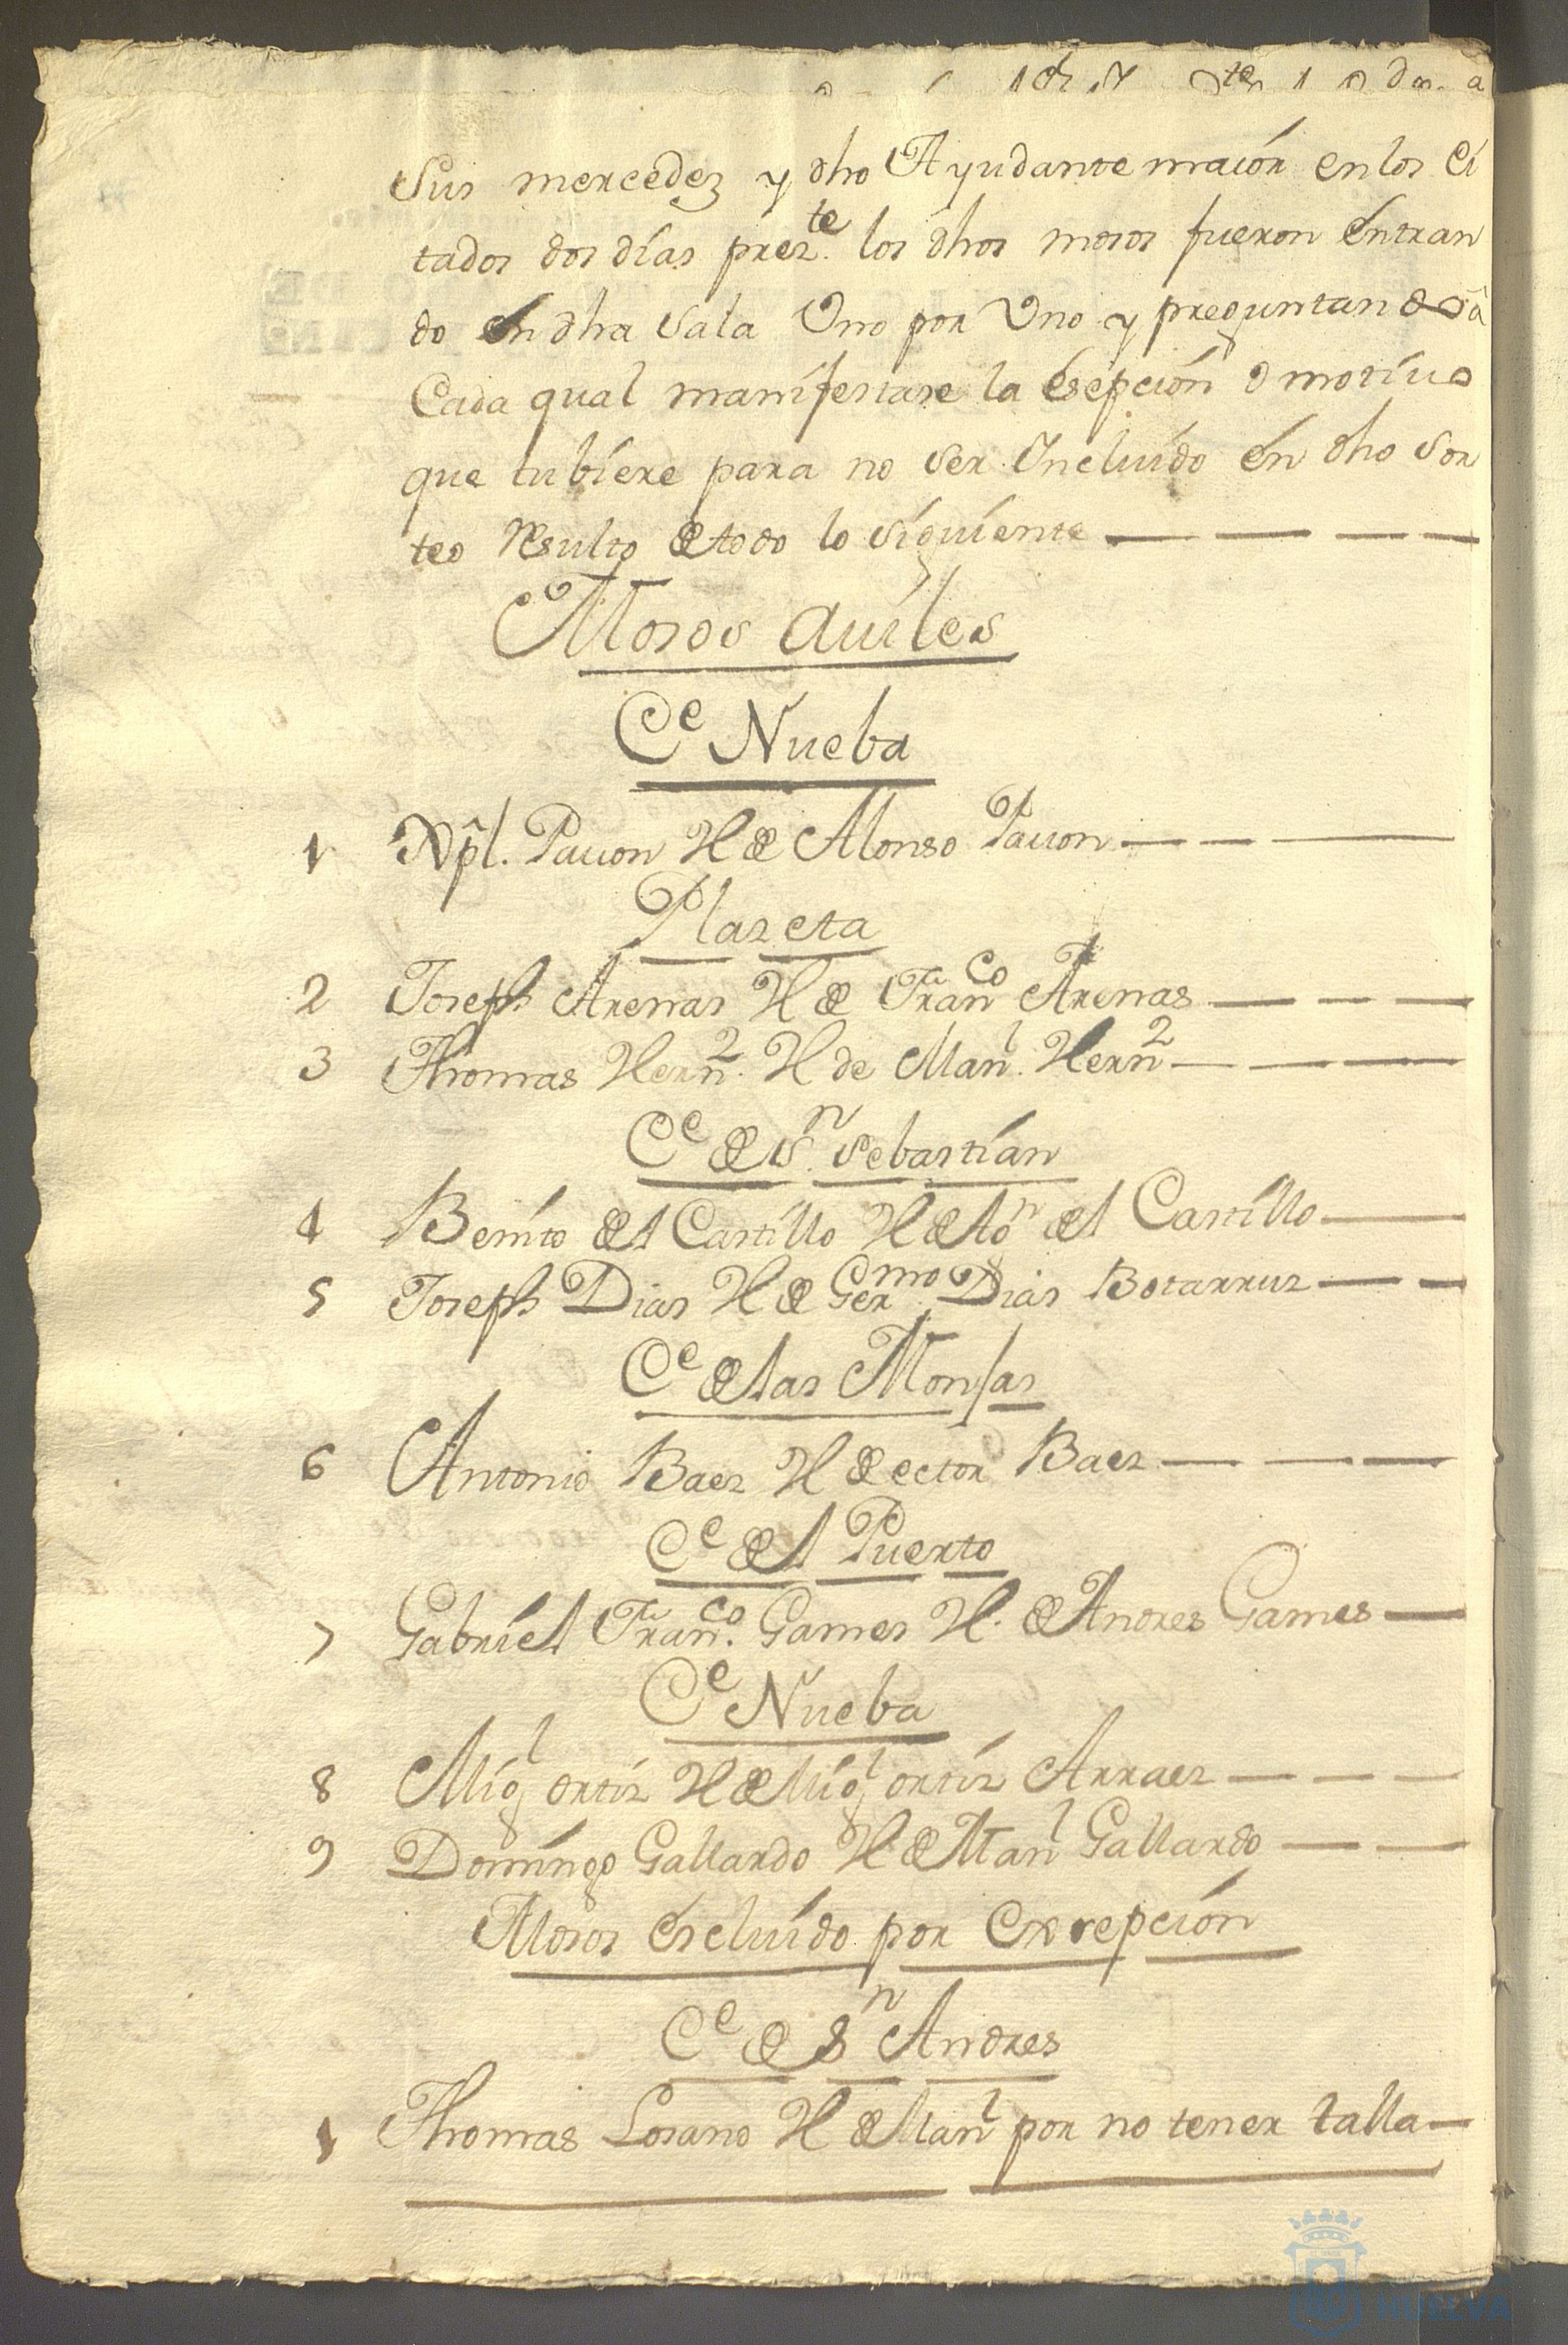 Sus mercedez y dho Ayudante maior en los ci
tados dos dias prez.te los dhos mosos fueron entran
do en dha sala Uno por Uno y preguntando â
Cada qual manifestase la esepción o motivo
que tubiere para no ser Incluido en dho sor
teo Resulto de todo lo siguiente
Mosos aviles
Ce Nueba
1 Xpl. Pavon H de Alonso Pavon
Plazeta
2 Joseph Arenas H de Franco Arenas
3 Thomas Hernz. H de Manl. Hernz
Ce de Sn. Sebastian
4 Benito del Castillo H de Anto del Castillo
5 Joseph Dias H de Germo. Dias Botarruz
Ce de las Monjas
6 Antonio Baez H de ector Baez
Ce del Puerto
7 Gabriel Franco. Games H. de Andres Games
Ce Nueba
8 Migl ortiz H de Migl ortiz Arraez
9 Domingo Gallardo H de Manl Gallardo
Mosos escluido por Excepción
Ce de Sn Andres
1 Thomas Losano H de Manl por no tener talla
HUELVA